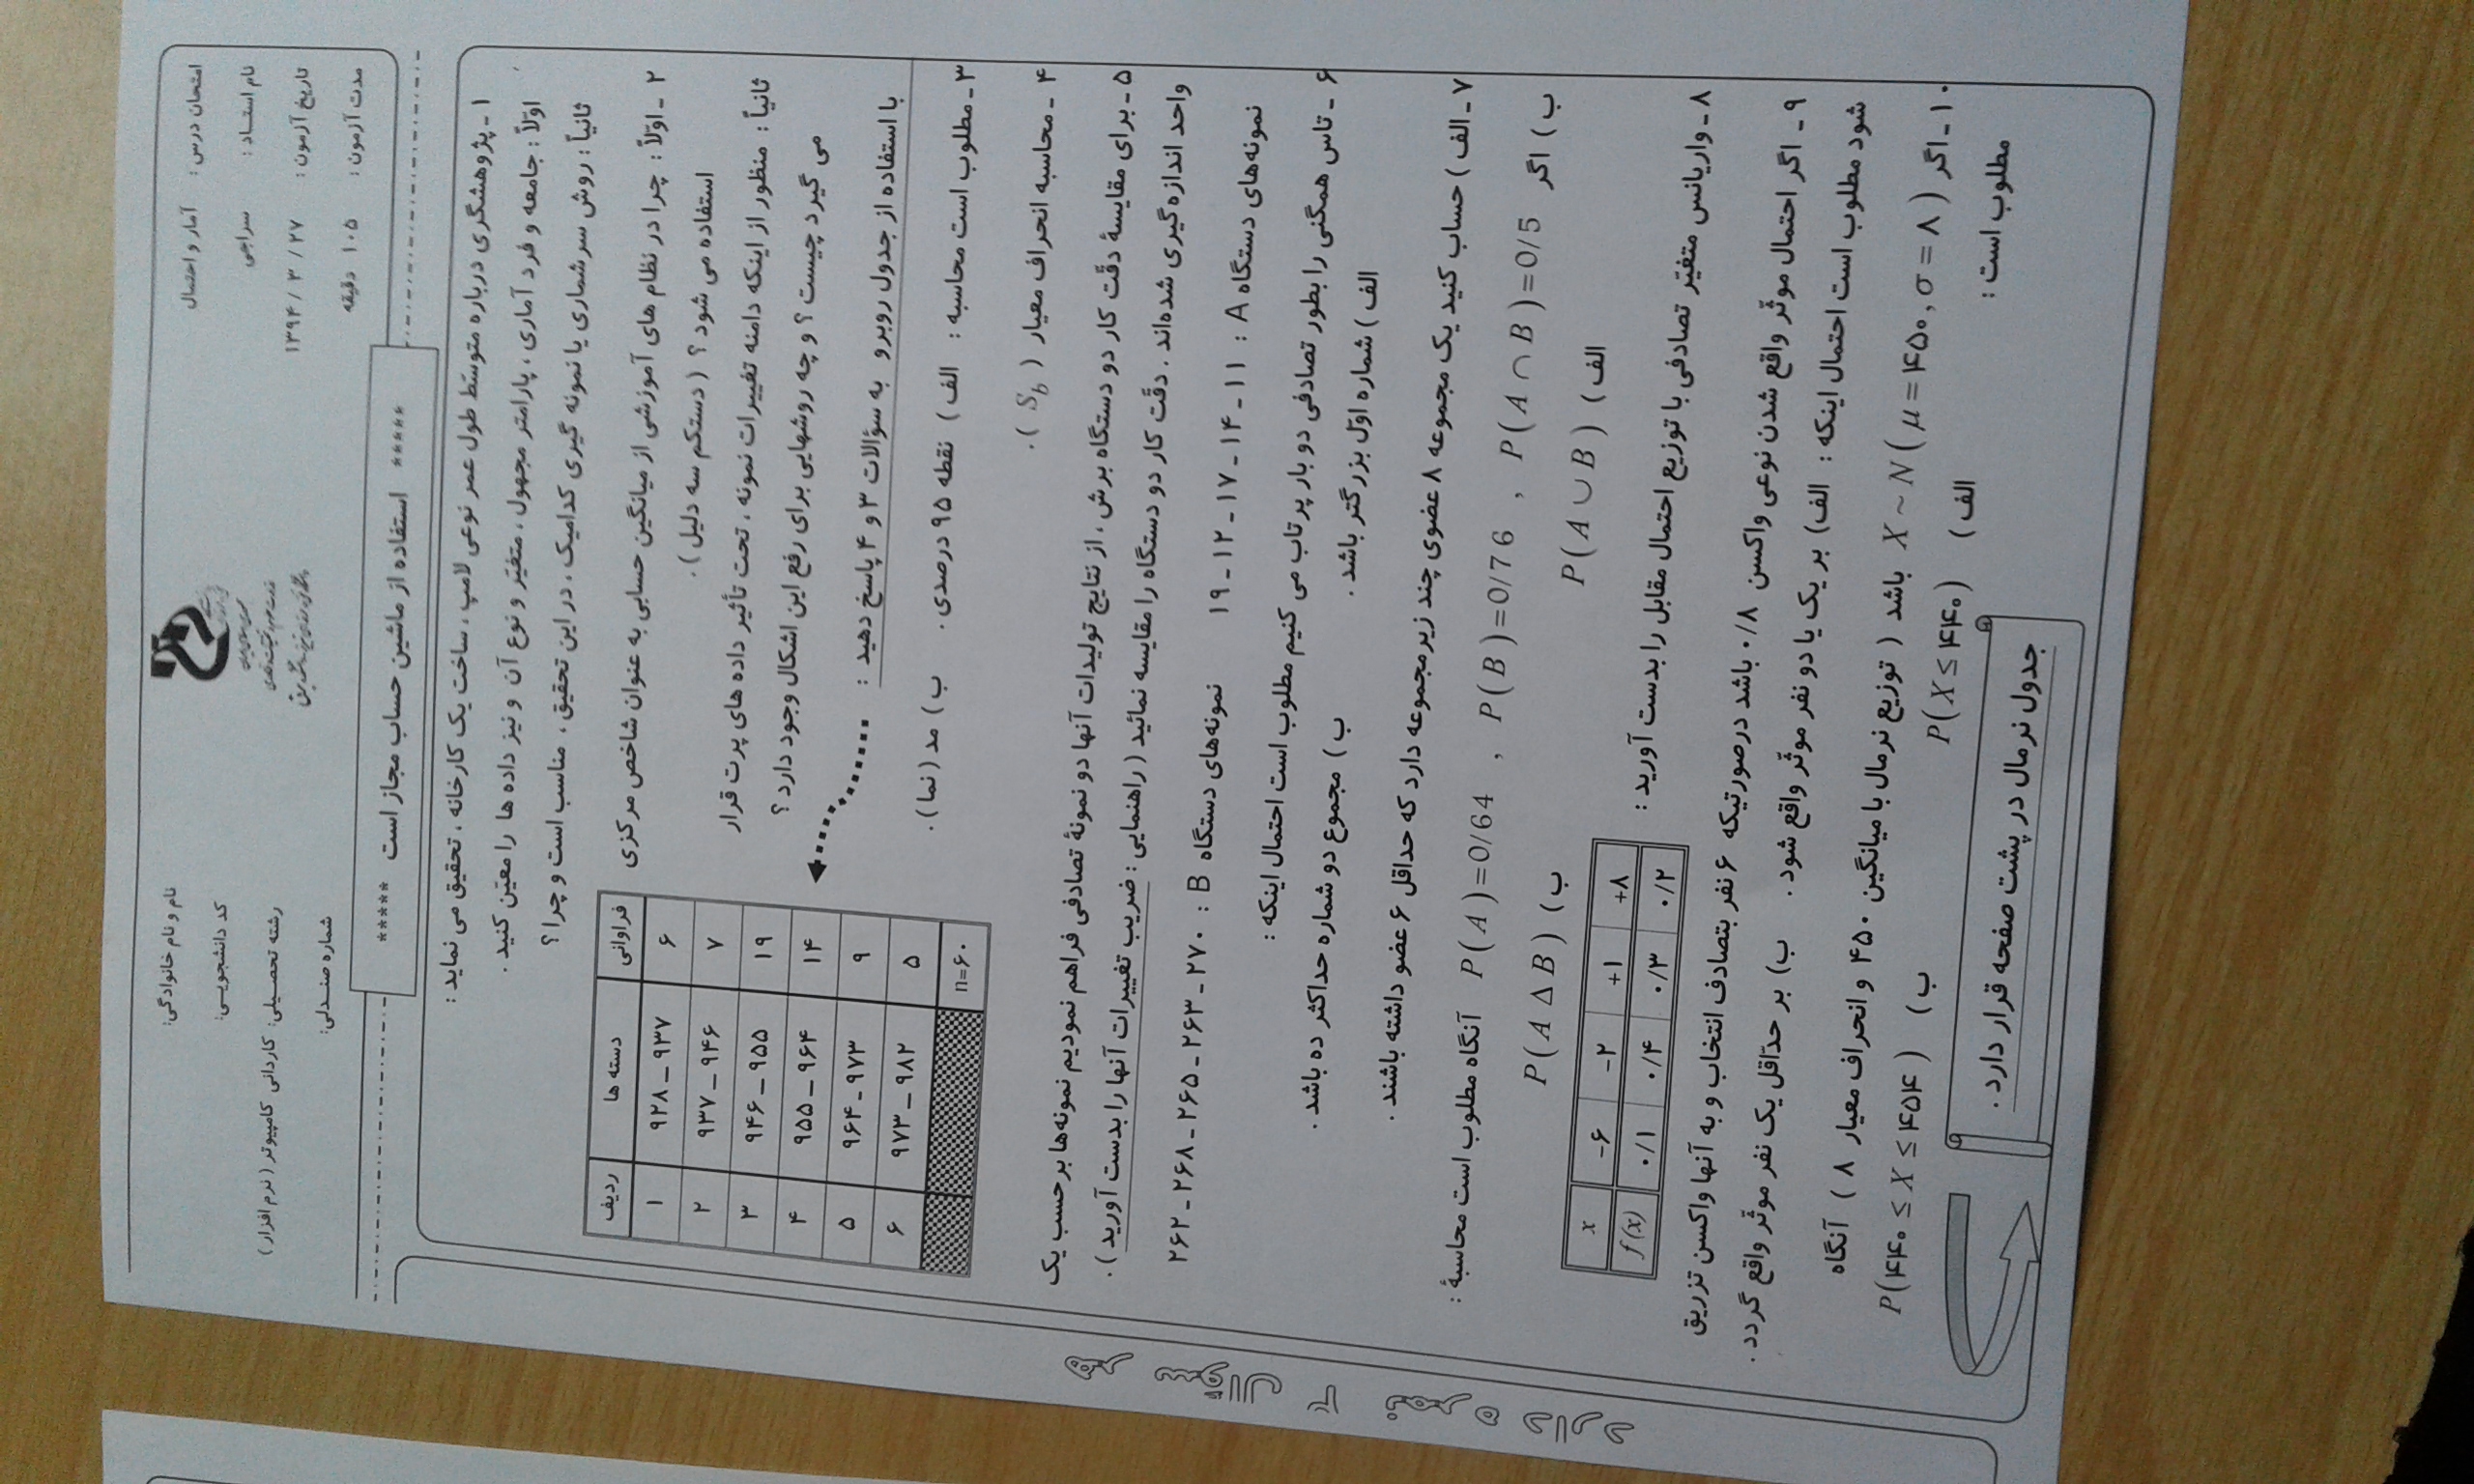 امتحان درس: آمار و احتمال
نام استـاد: سراجی
تاریخ آزمون: ۱۳۹۴ / ۳ / ۲۷
مدت آزمون: ۱۰۵ دقیقه
نام و نام خانوادگی:
کد دانشجویـی:
رشته تحصیلی: کاردانی کامپیوتر (نرم افزار)
شماره صندلی:
***** استفاده از ماشین حساب مجاز است *****
۱ - پژوهشگری درباره متوسّط طول عمر نوعی لامپ، ساخت یک کارخانه، تحقیق می نماید:
اوّلاً: جامعه و فرد آماری، پارامتر مجهول، متغیّر و نوع آن و نیز داده ها را معیّن کنید.
ثانیاً: روش سرشماری یا نمونه گیری کدامیک، در این تحقیق، مناسب است و چرا؟
۲ - اوّلاً: چرا در نظام های آموزشی از میانگین حسابی به عنوان شاخص مرکزی
استفاده می شود؟ (دستکم سه دلیل).
ثانیاً: منظور از اینکه دامنه تغییرات نمونه، تحت تأثیر داده های پرت قرار
می گیرد چیست؟ و چه روشهایی برای رفع این اشکال وجود دارد؟
با استفاده از جدول روبرو به سؤالات ۳ و ۴ پاسخ دهید:
ردیف دسته ها فراوانی
۱ ۹۲۸ – ۹۳۷ ۶
۲ ۹۳۷ – ۹۴۶ ۷
۳ ۹۴۶ – ۹۵۵ ۱۹
۴ ۹۵۵ – ۹۶۴ ۱۴
۵ ۹۶۴ – ۹۷۳ ۹
۶ ۹۷۳ – ۹۸۲ ۵
n=۶۰
۳ - مطلوب است محاسبه: الف) نقطه ۹۵ درصدی. ب) مد (نما).
۴ - محاسبه انحراف معیار (S_b).
۵ - برای مقایسهٔ دقّت کار دو دستگاه برش، از نتایج تولیدات آنها دو نمونهٔ تصادفی فراهم نمودیم نمونه‌ها برحسب یک
واحد اندازه‌گیری شده‌اند. دقّت کار دو دستگاه را مقایسه نمائید (راهنمایی: ضریب تغییرات آنها را بدست آورید).
نمونه‌های دستگاه A : ۱۱ – ۱۴ – ۱۷ – ۱۲ – ۱۹ نمونه‌های دستگاه B : ۲۷۰ – ۲۶۳ – ۲۶۵ – ۲۶۸ – ۲۶۲
۶ - تاس همگنی را بطور تصادفی دو بار پرتاب می کنیم مطلوب است احتمال اینکه:
الف) شماره اوّل بزرگتر باشد. ب) مجموع دو شماره حداکثر ده باشد.
۷ - الف) حساب کنید یک مجموعه ۸ عضوی چند زیرمجموعه دارد که حداقل ۶ عضو داشته باشند.
ب) اگر P(A)=0/64 , P(B)=0/76 , P(A∩B)=0/5 آنگاه مطلوب است محاسبهٔ:
الف) P(A∪B) ب) P(A Δ B)
۸ - واریانس متغیّر تصادفی با توزیع احتمال مقابل را بدست آورید:
x -۶ -۲ +۱ +۸
f(x) ۰/۱ ۰/۴ ۰/۳ ۰/۲
۹ - اگر احتمال موثّر واقع شدن نوعی واکسن ۰/۸ باشد درصورتیکه ۶ نفر بتصادف انتخاب و به آنها واکسن تزریق
شود مطلوب است احتمال اینکه: الف) بر یک یا دو نفر موثّر واقع شود. ب) بر حدّاقل یک نفر موثّر واقع گردد.
۱۰ - اگر X ~ N(μ=۴۵۰, σ=۸) باشد (توزیع نرمال با میانگین ۴۵۰ و انحراف معیار ۸) آنگاه
مطلوب است: الف) P(X≤۴۴۰) ب) P(۴۴۰≤X≤۴۵۴)
جدول نرمال در پشت صفحه قرار دارد.